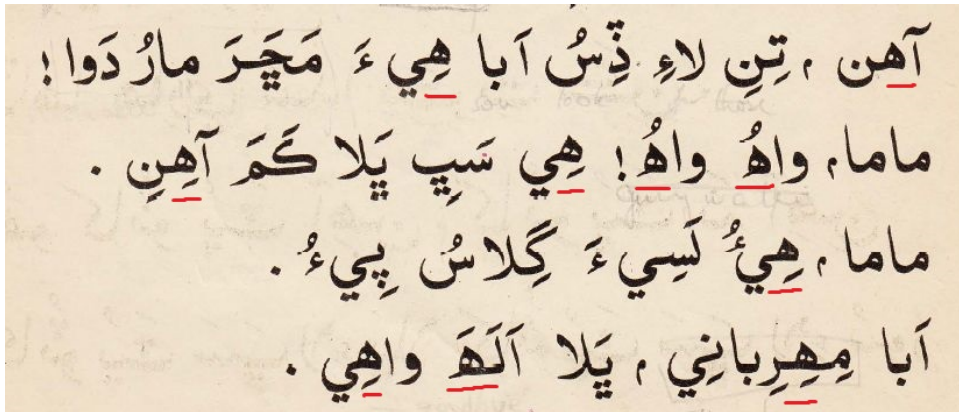 آهن ، تِنِ لاءِ ڏِسُ اَبا هِي ءَ مَڇَرَ مارُ دَوا !
ماما، واهُ واهُ ! هِي سَڀِ ڀَلا ڪَمَ آهِنِ .
ماما ، هِيءُ لَسِي ءَ گِلاسُ پِي ءُ .
اَبا مِهِرِبانِي ، ڀَلا اَلَهَ واهِي .